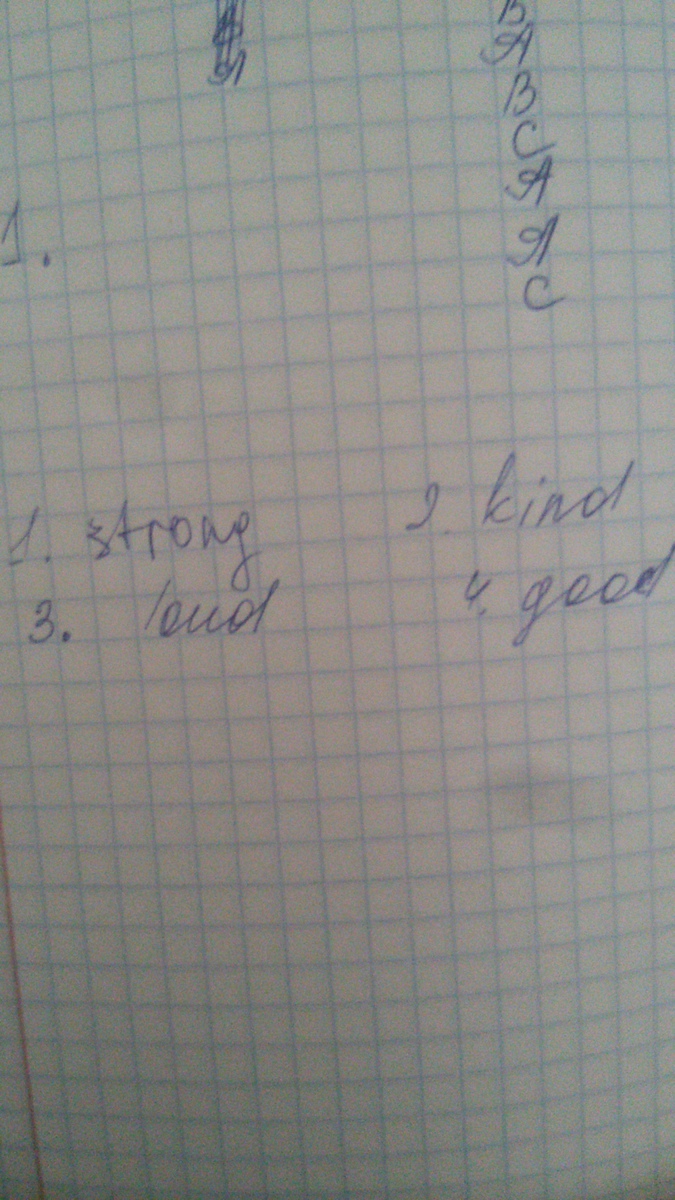 B
A
A
B
C
A
1.
A
C
1. strong 2. kind
3. loud 4. good